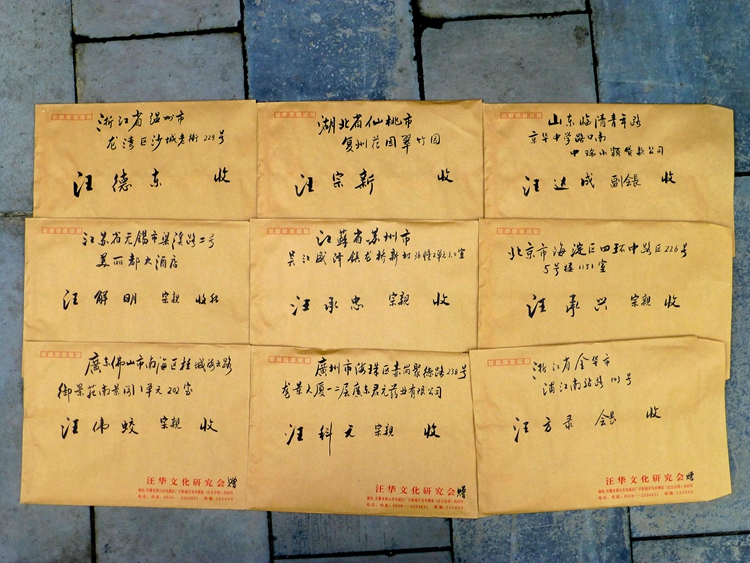 浙江省温州市
龙湾区沙城老街229号
汪德东 收
湖北省仙桃市
复州花园翠竹园
汪宗新 收
山东临清青年路
京华中学路口南
中瑞小额贷款公司
汪达成 副会長 收
江苏省无锡市梁溪路二号
美丽都大酒店
汪解明 宗親 收
江蘇省苏州市
吴江盛泽镇龙桥新村
汪承忠 宗親 收
北京市海淀区四环中路226号
5号楼1151室
汪承兴 宗親 收
廣东佛山市南海区桂城
御景苑南景阁1单元202室
汪伟蛟 宗親 收
汪华文化研究会 赠
廣州市海珠区赤岗聚德路238号
龙景大厦一二层廣东君元药业有限公司
汪科元 宗親 收
汪华文化研究会 赠
浙江省金华市
浦江南站路 号
汪方录 会長 收
汪华文化研究会 赠